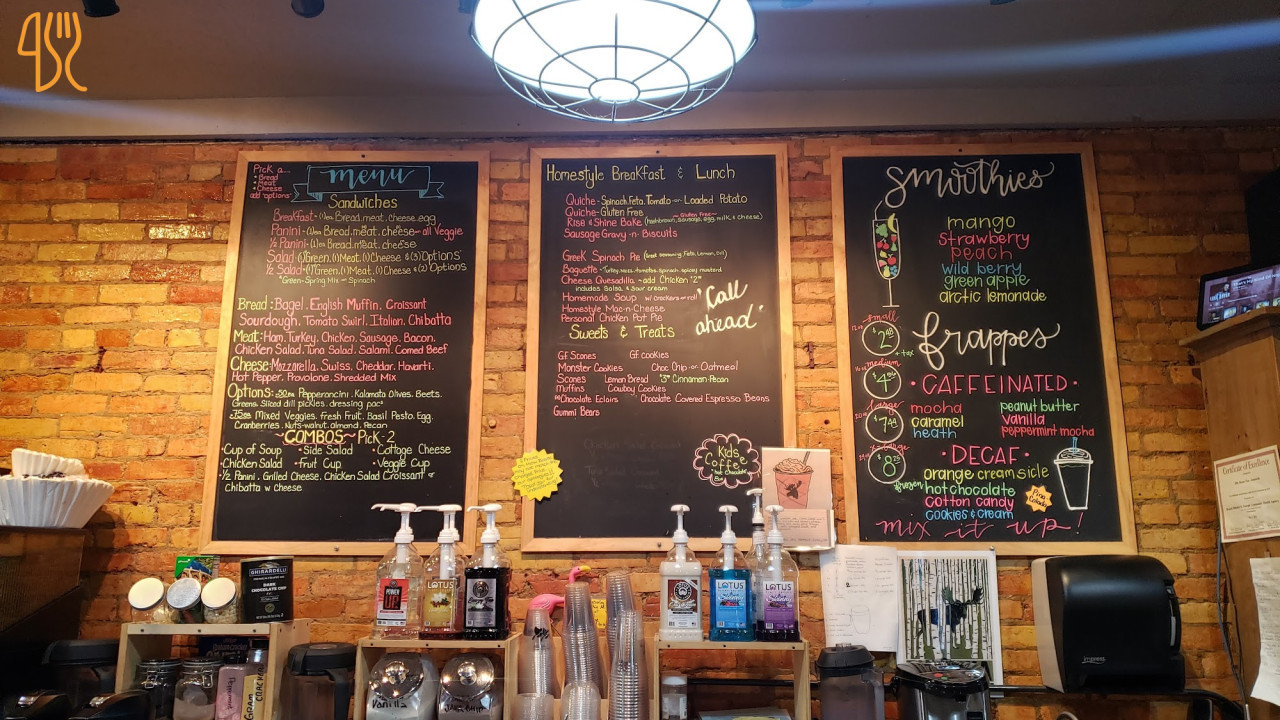 Pick a...
• Bread
• Meat
• Cheese
add "options"
menu
Sandwiches
Breakfast - (1) Bread, meat, cheese, egg
Panini - (1) Bread, meat, cheese - all Veggie
½ Panini - (1) Bread, meat, cheese
Salad - (1) Green, (1) Meat, (1) Cheese & (3) Options
½ Salad - (1) Green, (1) Meat, (1) Cheese & (2) Options
*Green - Spring Mix or Spinach
Bread: Bagel, English Muffin, Croissant
Sourdough, Tomato Swirl, Italian, Chibatta
Meat: Ham, Turkey, Chicken, Sausage, Bacon,
Chicken Salad, Tuna Salad, Salami, Corned Beef
Cheese: Mozzarella, Swiss, Cheddar, Havarti,
Hot Pepper, Provolone, Shredded Mix
Options: Pepperoncini, Kalamata Olives, Beets,
Greens, Sliced dill pickles, dressing pac+
Mixed Veggies, fresh Fruit, Basil Pesto, Egg,
Cranberries, Nuts-walnut, almond, Pecan
~COMBOS~ Pick-2
• Cup of Soup • Side Salad • Cottage Cheese
• Chicken Salad • Fruit Cup • Veggie Cup
• ½ Panini, Grilled Cheese, Chicken Salad Croissant or
Chibatta w Cheese
Homestyle Breakfast & Lunch
Quiche - Spinach, Feta, Tomato -or- Loaded Potato
Quiche - Gluten Free
~ Gluten Free ~
Rise & Shine Bake (hashbrown, sausage, egg, milk, & cheese)
Sausage Gravy -n- Biscuits
Greek Spinach Pie
Baguette
Cheese Quesadilla - add Chicken
includes Salsa & sour cream
Homemade Soup w crackers or roll
Homestyle Mac-n-Cheese
Personal Chicken Pot Pie
'Call
ahead'
Sweets & Treats
GF Scones GF cookies
Monster Cookies Choc Chip -or- Oatmeal
Scones Lemon Bread Cinnamon-Pecan
Muffins Cowboy Cookies
Chocolate Eclairs Chocolate Covered Espresso Beans
Gummi Bears
Kids
Coffee
Smoothies
mango
strawberry
peach
wild berry
green apple
arctic lemonade
frappes
small
medium
large
frozen
+ tax
• CAFFEINATED •
mocha peanut butter
caramel vanilla
heath peppermint mocha
• DECAF •
orange creamsicle
hot chocolate
cotton candy
cookies & cream
mix it up!
Certificate of Excellence
GHIRARDELLI
DARK
CHOCOLATE
LOTUS
LOTUS
LOTUS
Vanilla
GRAHAM
CRACKER